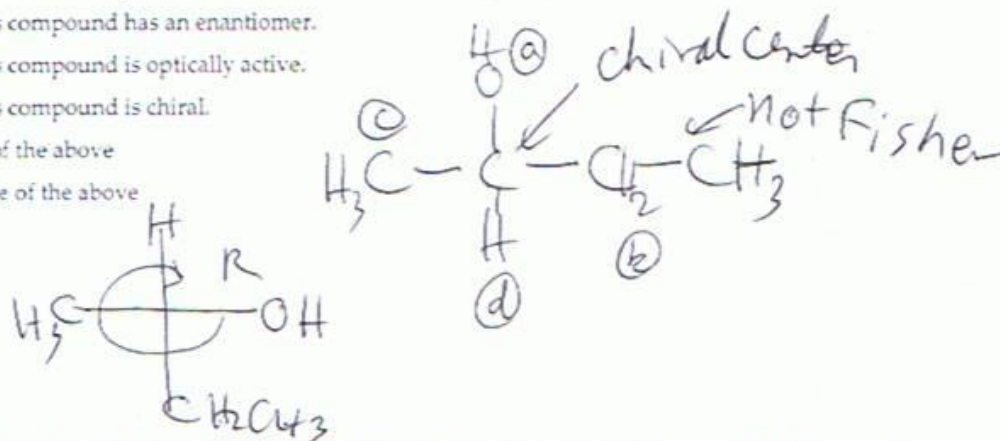 s compound has an enantiomer.
s compound is optically active.
s compound is chiral.
of the above
e of the above
HO ⓐ
chiral center
ⓒ
not Fisher
H3C - C - CH2 - CH3
H
ⓑ
ⓓ
H
R
H3C OH
CH2CH3